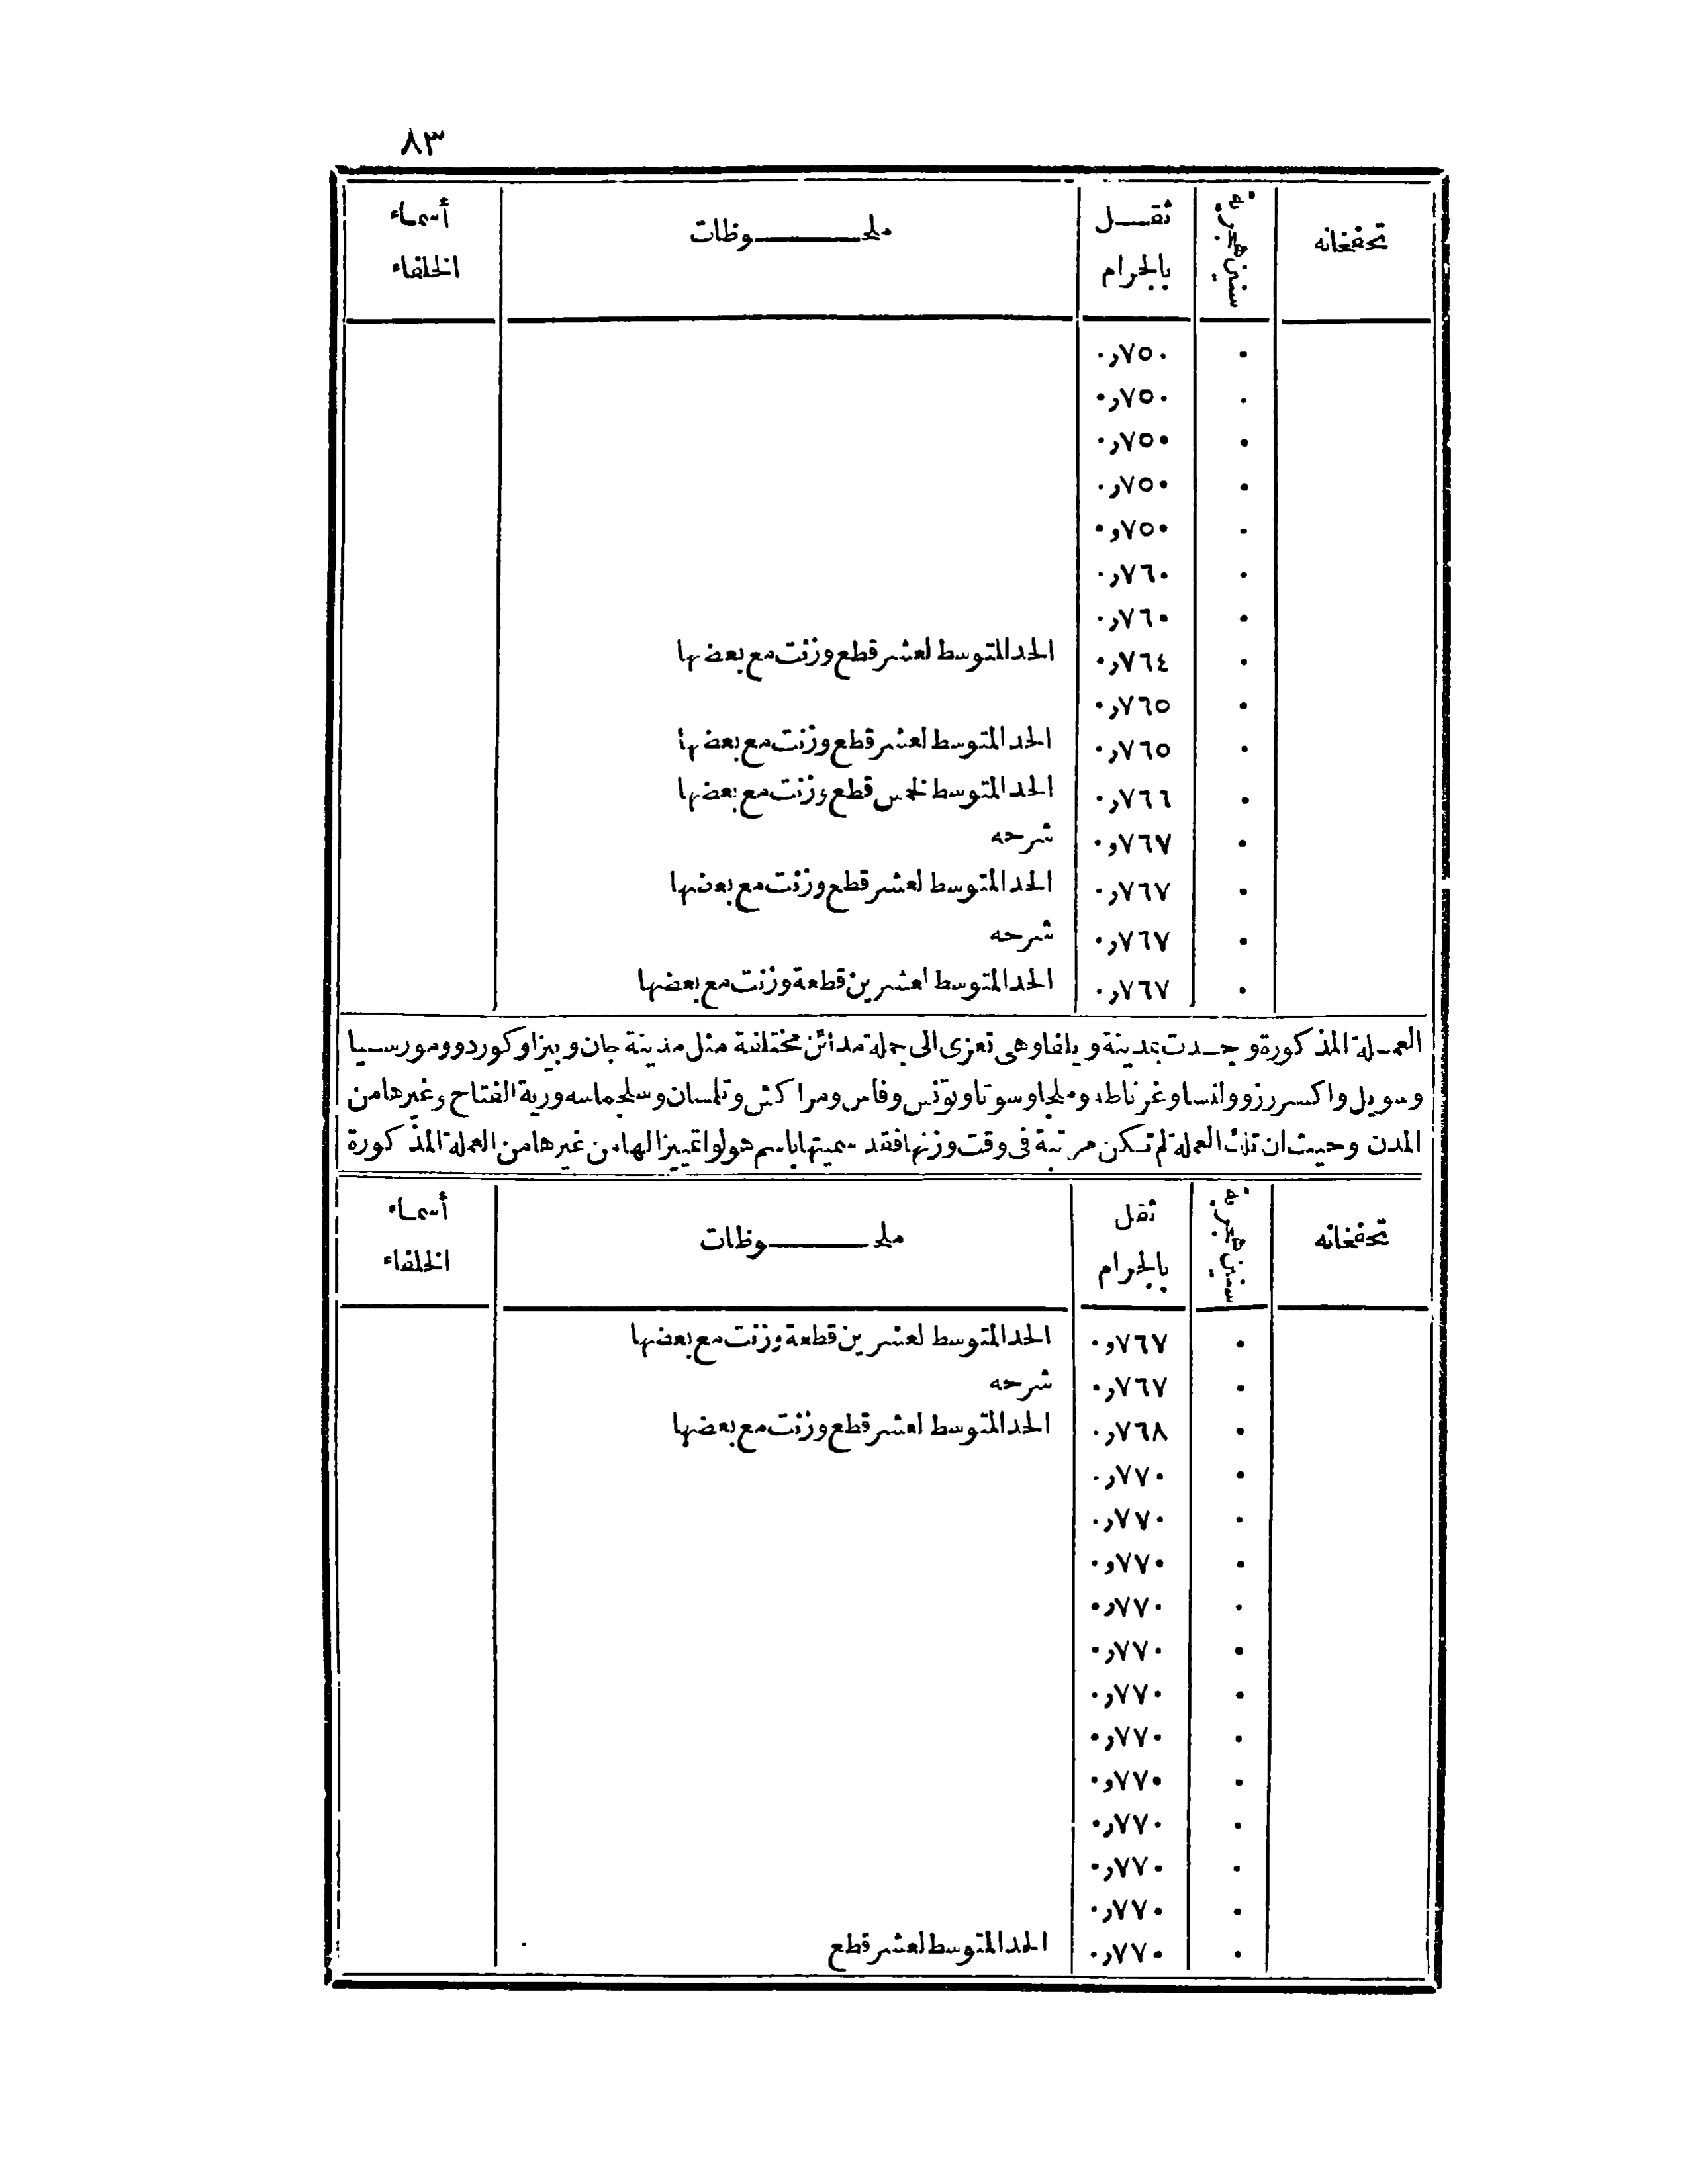 ٨٣
تحفخانه | سنين هجرية | ثقل بالجرام | ملحوظات | أسماء الخلفاء
٠ | ٠٫٧٥٠
٠ | ٠٫٧٥٠
٠ | ٠٫٧٥٠
٠ | ٠٫٧٥٠
٠ | ٠و٧٥٠
٠ | ٠٫٧٦٠
٠ | ٠٫٧٦٠
٠ | ٠٫٧٦٤ | الحد المتوسط لعشر قطع وزنت مع بعضها
٠ | ٠٫٧٦٥
٠ | ٠٫٧٦٥ | الحد المتوسط لعشر قطع وزنت مع بعضها
٠ | ٠٫٧٦٦ | الحد المتوسط لخمس قطع وزنت مع بعضها
٠ | ٠و٧٦٧ | شرحه
٠ | ٠٫٧٦٧ | الحد المتوسط لعشر قطع وزنت مع بعضها
٠ | ٠٫٧٦٧ | شرحه
٠ | ٠٫٧٦٧ | الحد المتوسط لعشرين قطعة وزنت مع بعضها
العملة المذكورة وجدت بمدينة ويلفا وهى تعزى الى جملة مدائن مختلفة مثل مدينة جان وبيزا وكوردو ومورسيا
وسويل واكسررزو وولنسا وغرناطه وملجا وسوتا وتونس وفاس ومراكش وتلمسان وسلجماسه ورية الفتاح وغيرها من
المدن وحيث ان تلك العملة لم تكن مرتبة فى وقت وزنها فقد سميتها باسم هولوا تمييزا لها من غيرها من العملة المذكورة
تحفخانه | سنين هجرية | ثقل بالجرام | ملحوظات | أسماء الخلفاء
٠ | ٠و٧٦٧ | الحد المتوسط لعشرين قطعة وزنت مع بعضها
٠ | ٠٫٧٦٧ | شرحه
٠ | ٠٫٧٦٨ | الحد المتوسط لعشر قطع وزنت مع بعضها
٠ | ٠٫٧٧٠
٠ | ٠٫٧٧٠
٠ | ٠و٧٧٠
٠ | ٠٫٧٧٠
٠ | ٠٫٧٧٠
٠ | ٠٫٧٧٠
٠ | ٠٫٧٧٠
٠ | ٠و٧٧٠
٠ | ٠٫٧٧٠
٠ | ٠٫٧٧٠
٠ | ٠٫٧٧٠
٠ | ٠٫٧٧٠ | الحد المتوسط لعشر قطع